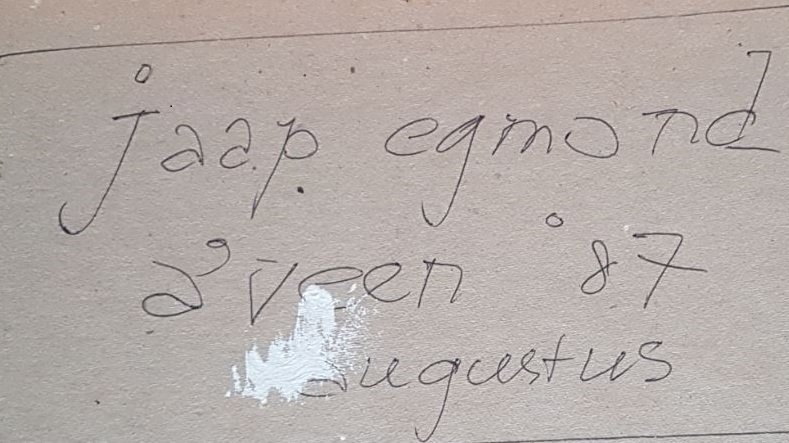 jaap egmond
a'veen '87
augustus